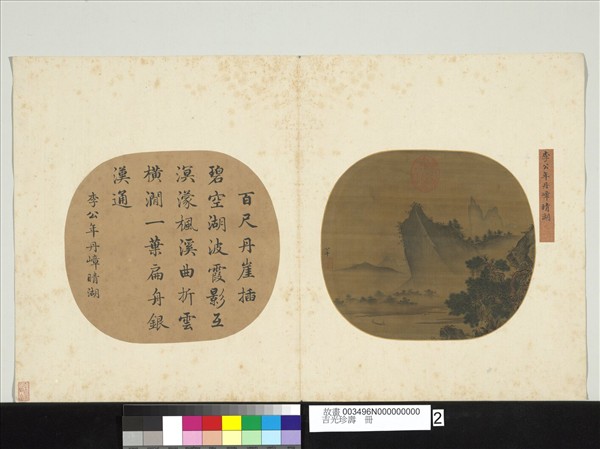 李公年丹嶂晴湖
百尺丹崖插
碧空湖波霞影互
溟濛楓溪曲折雲
橫澗一葉扁舟銀
漢通
李公年丹嶂晴湖
故畫 003496N000000000
吉光珍壽 冊
2